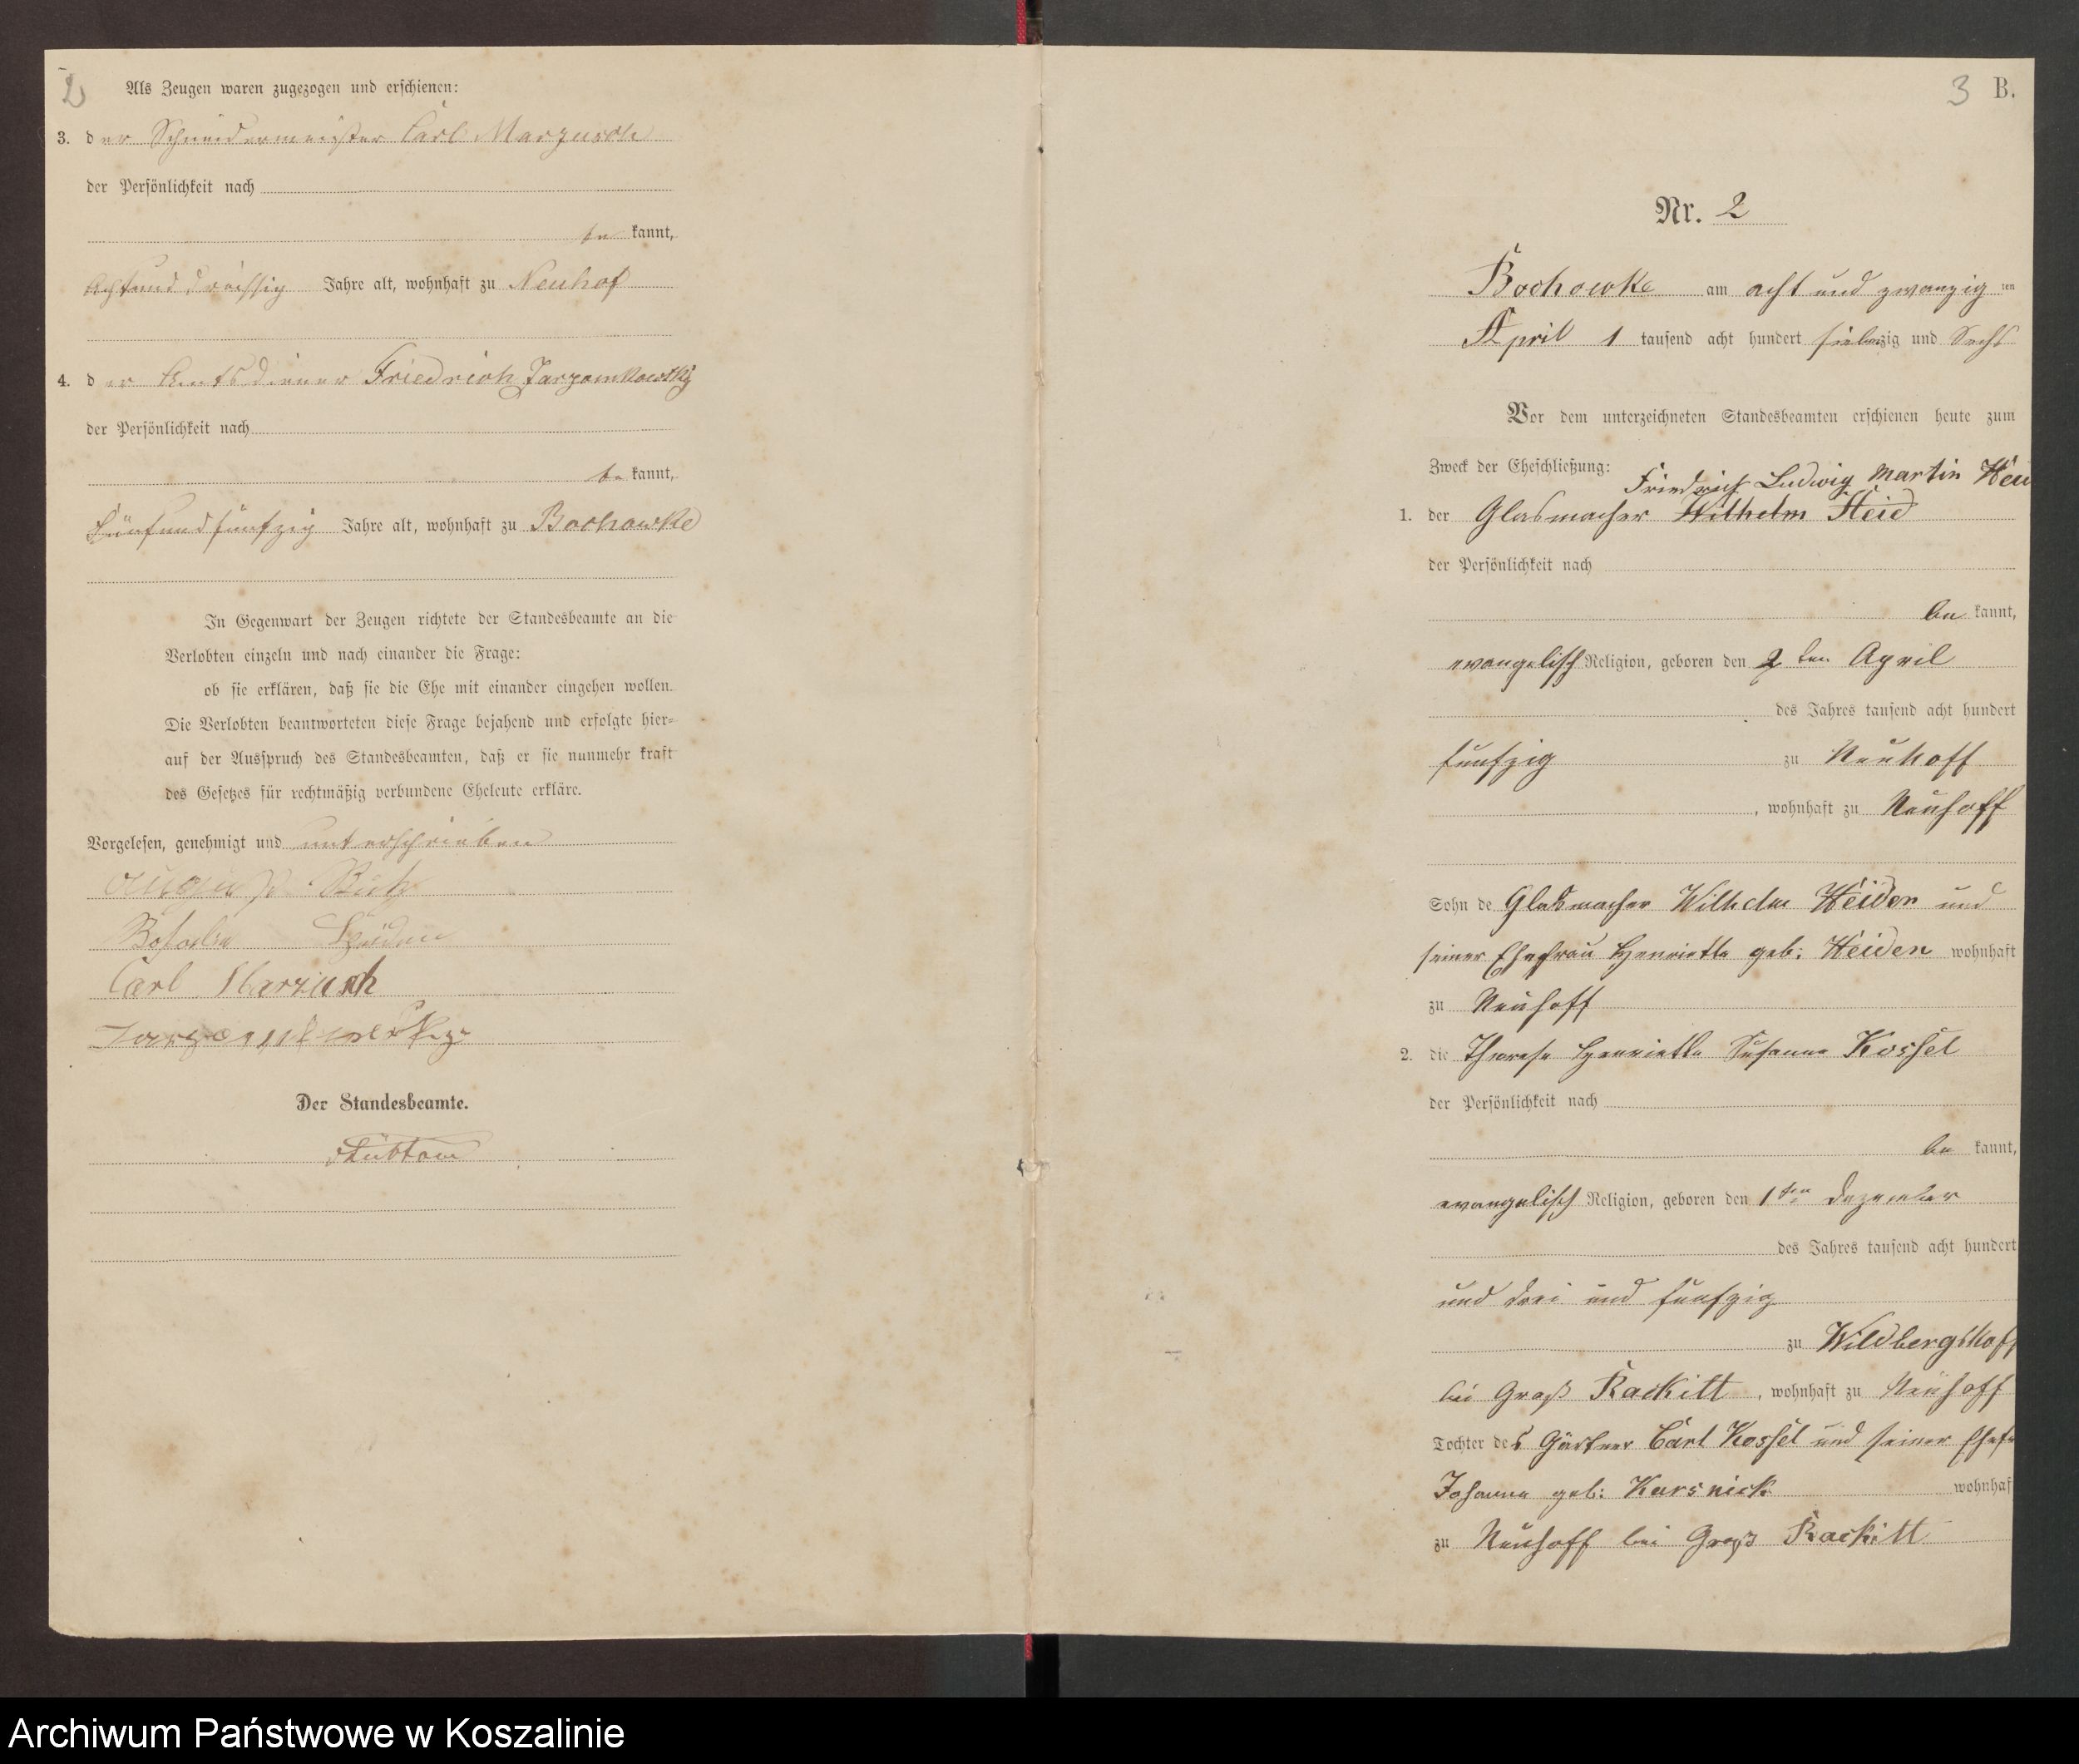 2
Als Zeugen waren zugezogen und erschienen:
3. der Schneidermeister Carl Marzusch
der Persönlichkeit nach
be kannt,
Achtund dreissig Jahre alt, wohnhaft zu Neuhof
4. der Amtsdiener Friedrich Jarzomkowsky
der Persönlichkeit nach
be kannt,
Fünfundfünfzig Jahre alt, wohnhaft zu Bochowke
In Gegenwart der Zeugen richtete der Standesbeamte an die
Verlobten einzeln und nach einander die Frage:
ob sie erklären, daß sie die Ehe mit einander eingehen wollen.
Die Verlobten beantworteten diese Frage bejahend und erfolgte hier-
auf der Ausspruch des Standesbeamten, daß er sie nunmehr kraft
des Gesetzes für rechtmäßig verbundene Eheleute erkläre.
Vorgelesen, genehmigt und unterschrieben
Carl Marzusch
Der Standesbeamte.
3 B.
Nr. 2
Bochowke am acht und zwanzig ten
April 1 tausend acht hundert siebenzig und Sechs
Vor dem unterzeichneten Standesbeamten erschienen heute zum
Zweck der Eheschließung:
Friedrich Ludwig Martin Hei
1. der Glasmacher Wilhelm Heid
der Persönlichkeit nach
be kannt,
evangelisch Religion, geboren den 2 ten April
des Jahres tausend acht hundert
funfzig zu Neuhoff
, wohnhaft zu Neuhoff
Sohn de Glasmacher Wilhelm Heiden und
seiner Ehefrau Henriette geb: Heiden wohnhaft
zu Neuhoff
2. die Therese Henriette Susanna Kossel
der Persönlichkeit nach
be kannt,
evangelisch Religion, geboren den 1 ten Dezember
des Jahres tausend acht hundert
und drei und funfzig
zu Wildbergshoff
bei Groß Rackitt , wohnhaft zu Neuhoff
Tochter des Gärtner Carl Kossel und seiner Ehef
Johanna geb: Karsnick wohnhaf
zu Neuhoff bei Groß Rackitt
Archiwum Państwowe w Koszalinie